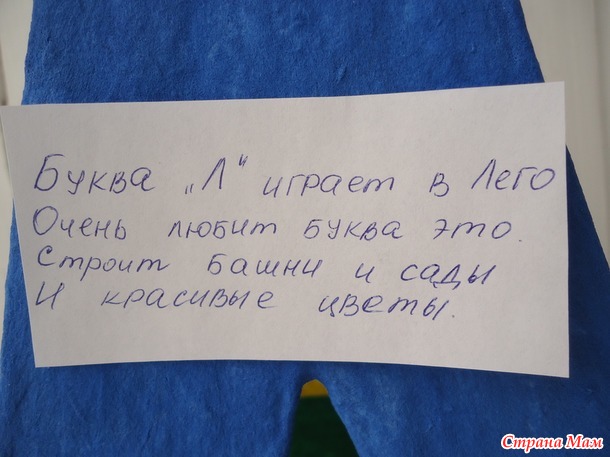 Буква „Л“ играет в Лего
Очень любит буква это.
Строит башни и сады
И красивые цветы.
Страна Мам